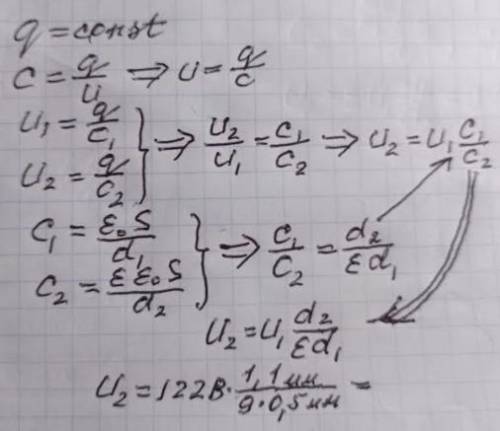 q = const
C = q/U ⇒ U = q/C
U₁ = q/C₁
U₂ = q/C₂ } ⇒ U₂/U₁ = C₁/C₂ ⇒ U₂ = U₁ C₁/C₂
C₁ = ε₀S/d₁
C₂ = εε₀S/d₂ } ⇒ C₁/C₂ = d₂/εd₁
U₂ = U₁ d₂/εd₁
U₂ = 122В · 1,1мм/9·0,5мм =